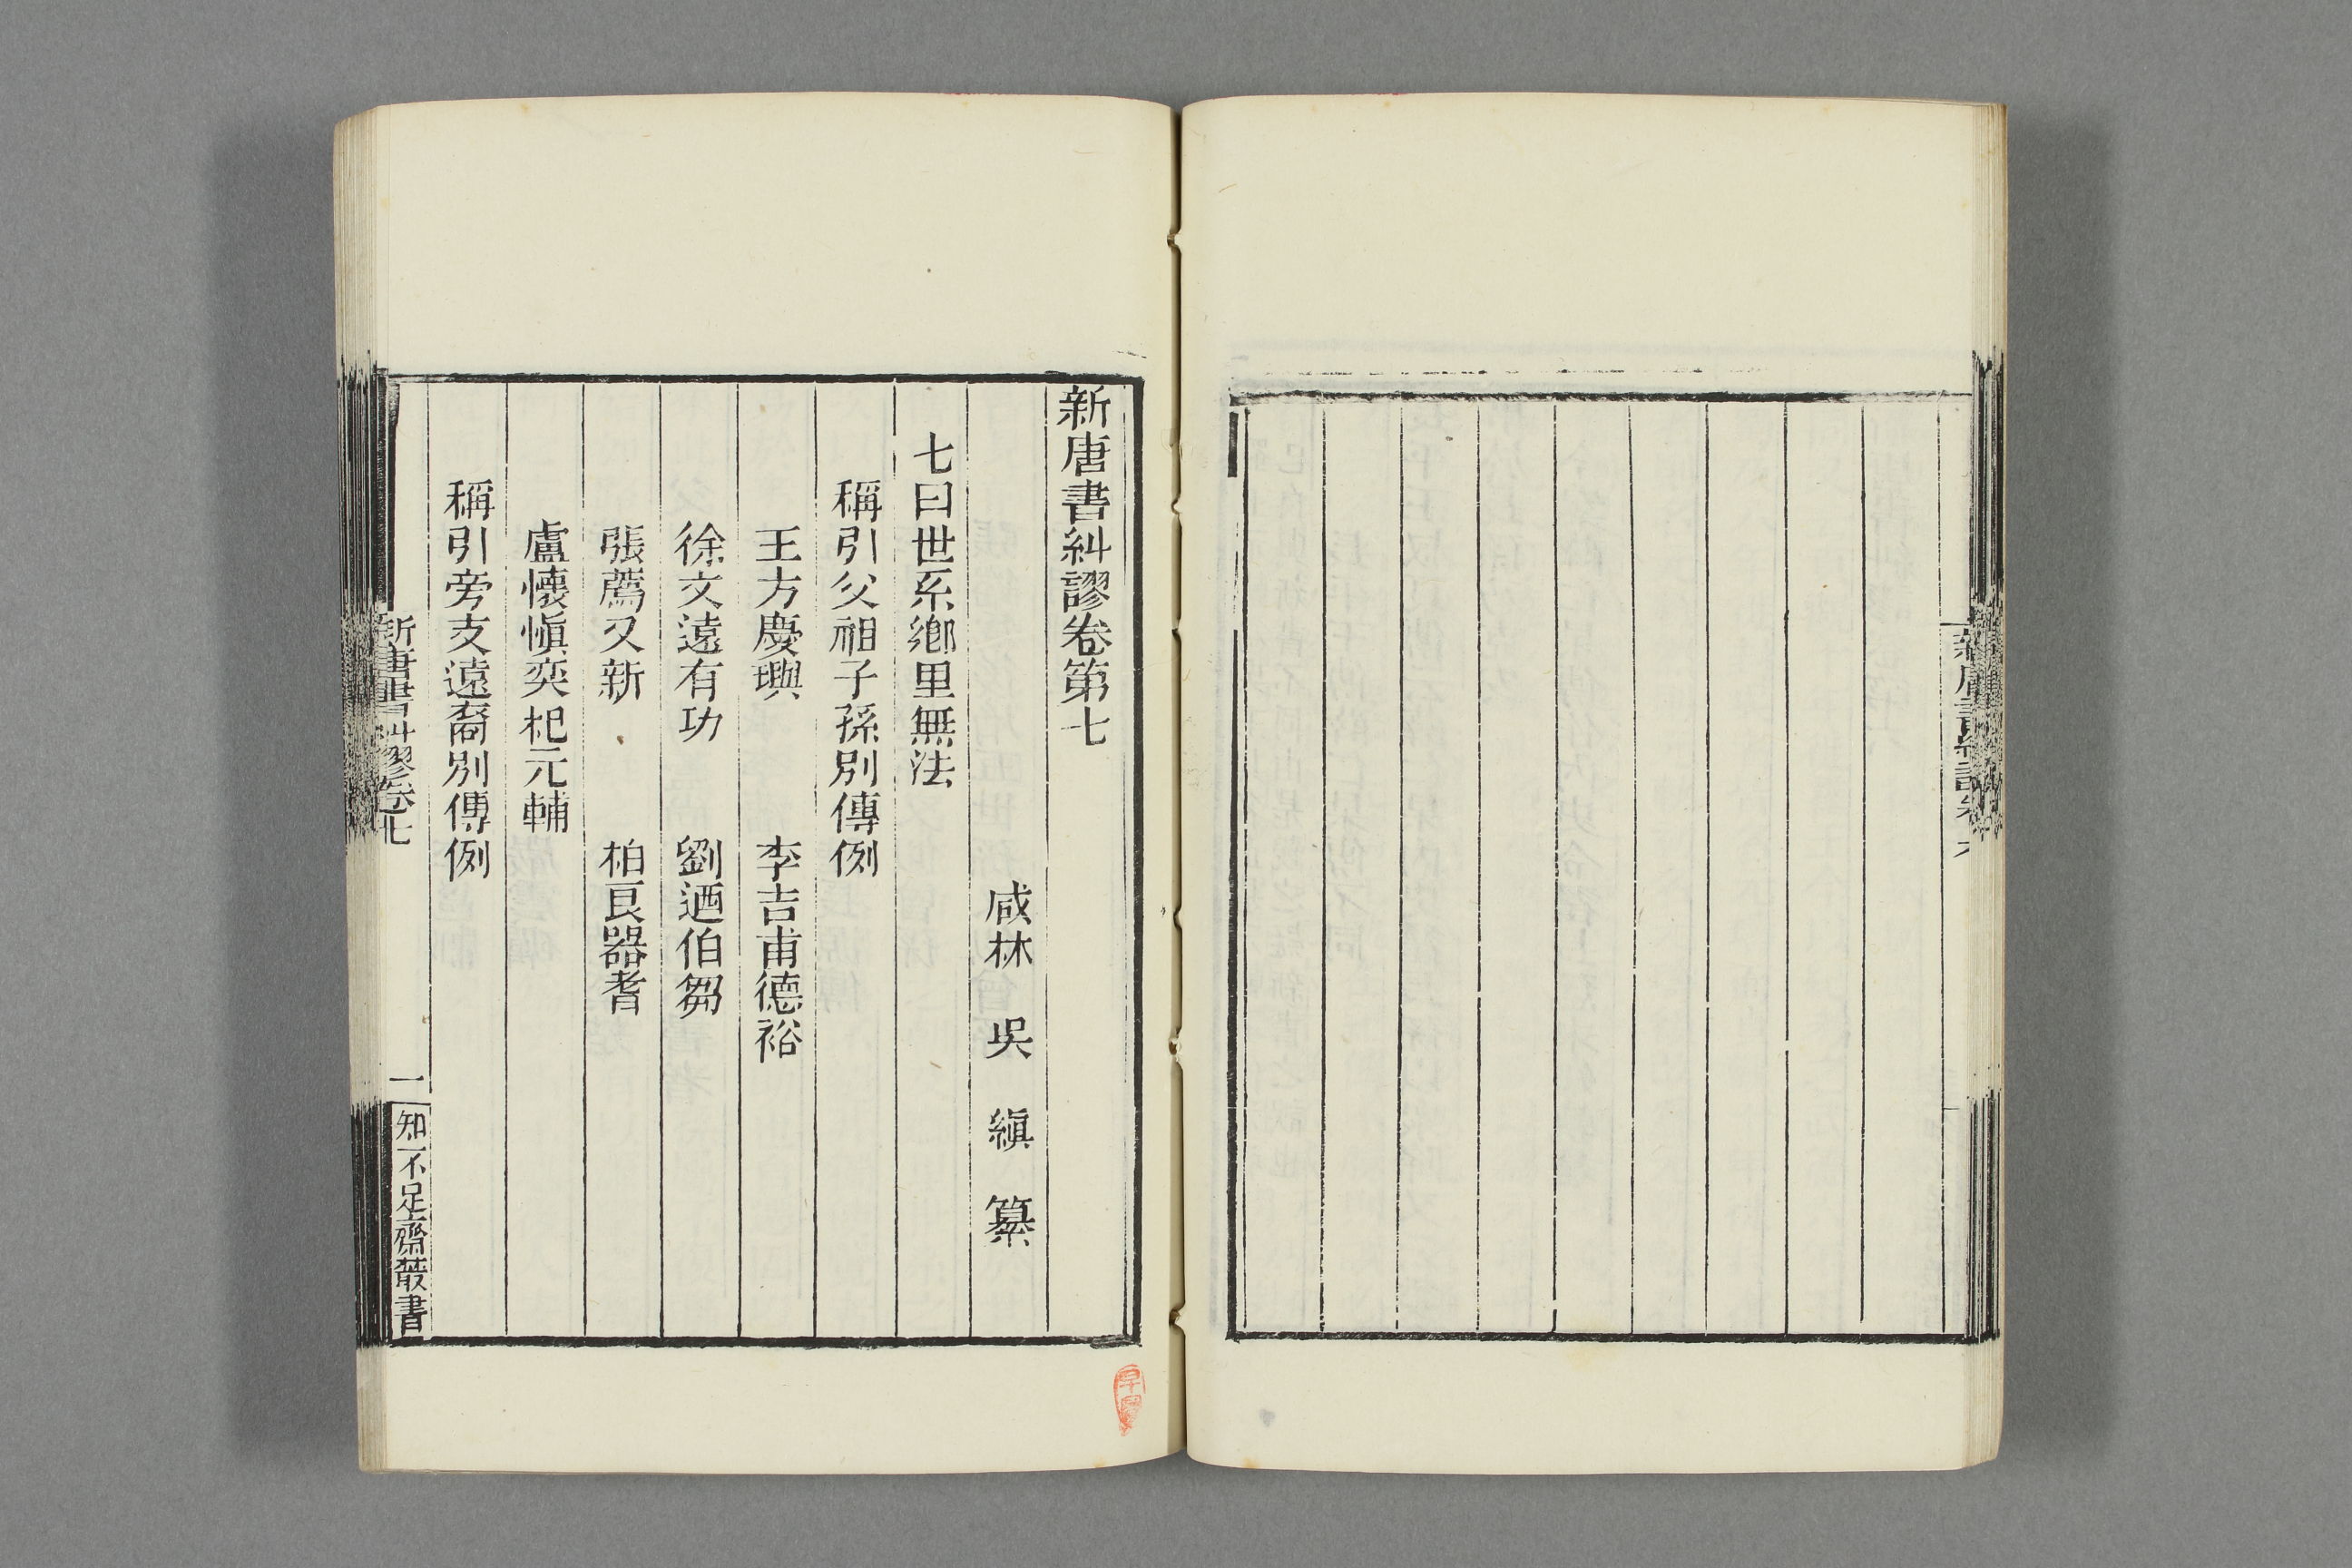 新唐書糾謬卷第七
咸林　吳　縝　纂
七曰世系鄉里無法
稱引父祖子孫別傳例
王方慶璵　李吉甫德裕
徐文遠有功　劉迺伯芻
張薦又新　柏良器耆
盧懷愼奕杞元輔
稱引旁支遠裔別傳例
新唐書糾謬卷七
一
知不足齋叢書